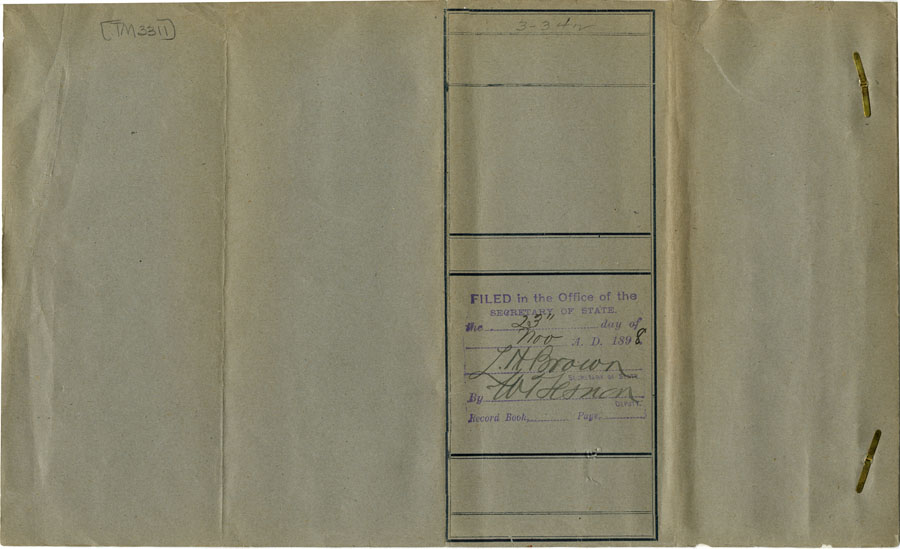 [TM3311]
3-34
FILED in the Office of the
SECRETARY OF STATE.
the 23" day of
Nov A. D. 1898
L. H. Brown
SECRETARY OF STATE
By
DEPUTY.
Record Book Page